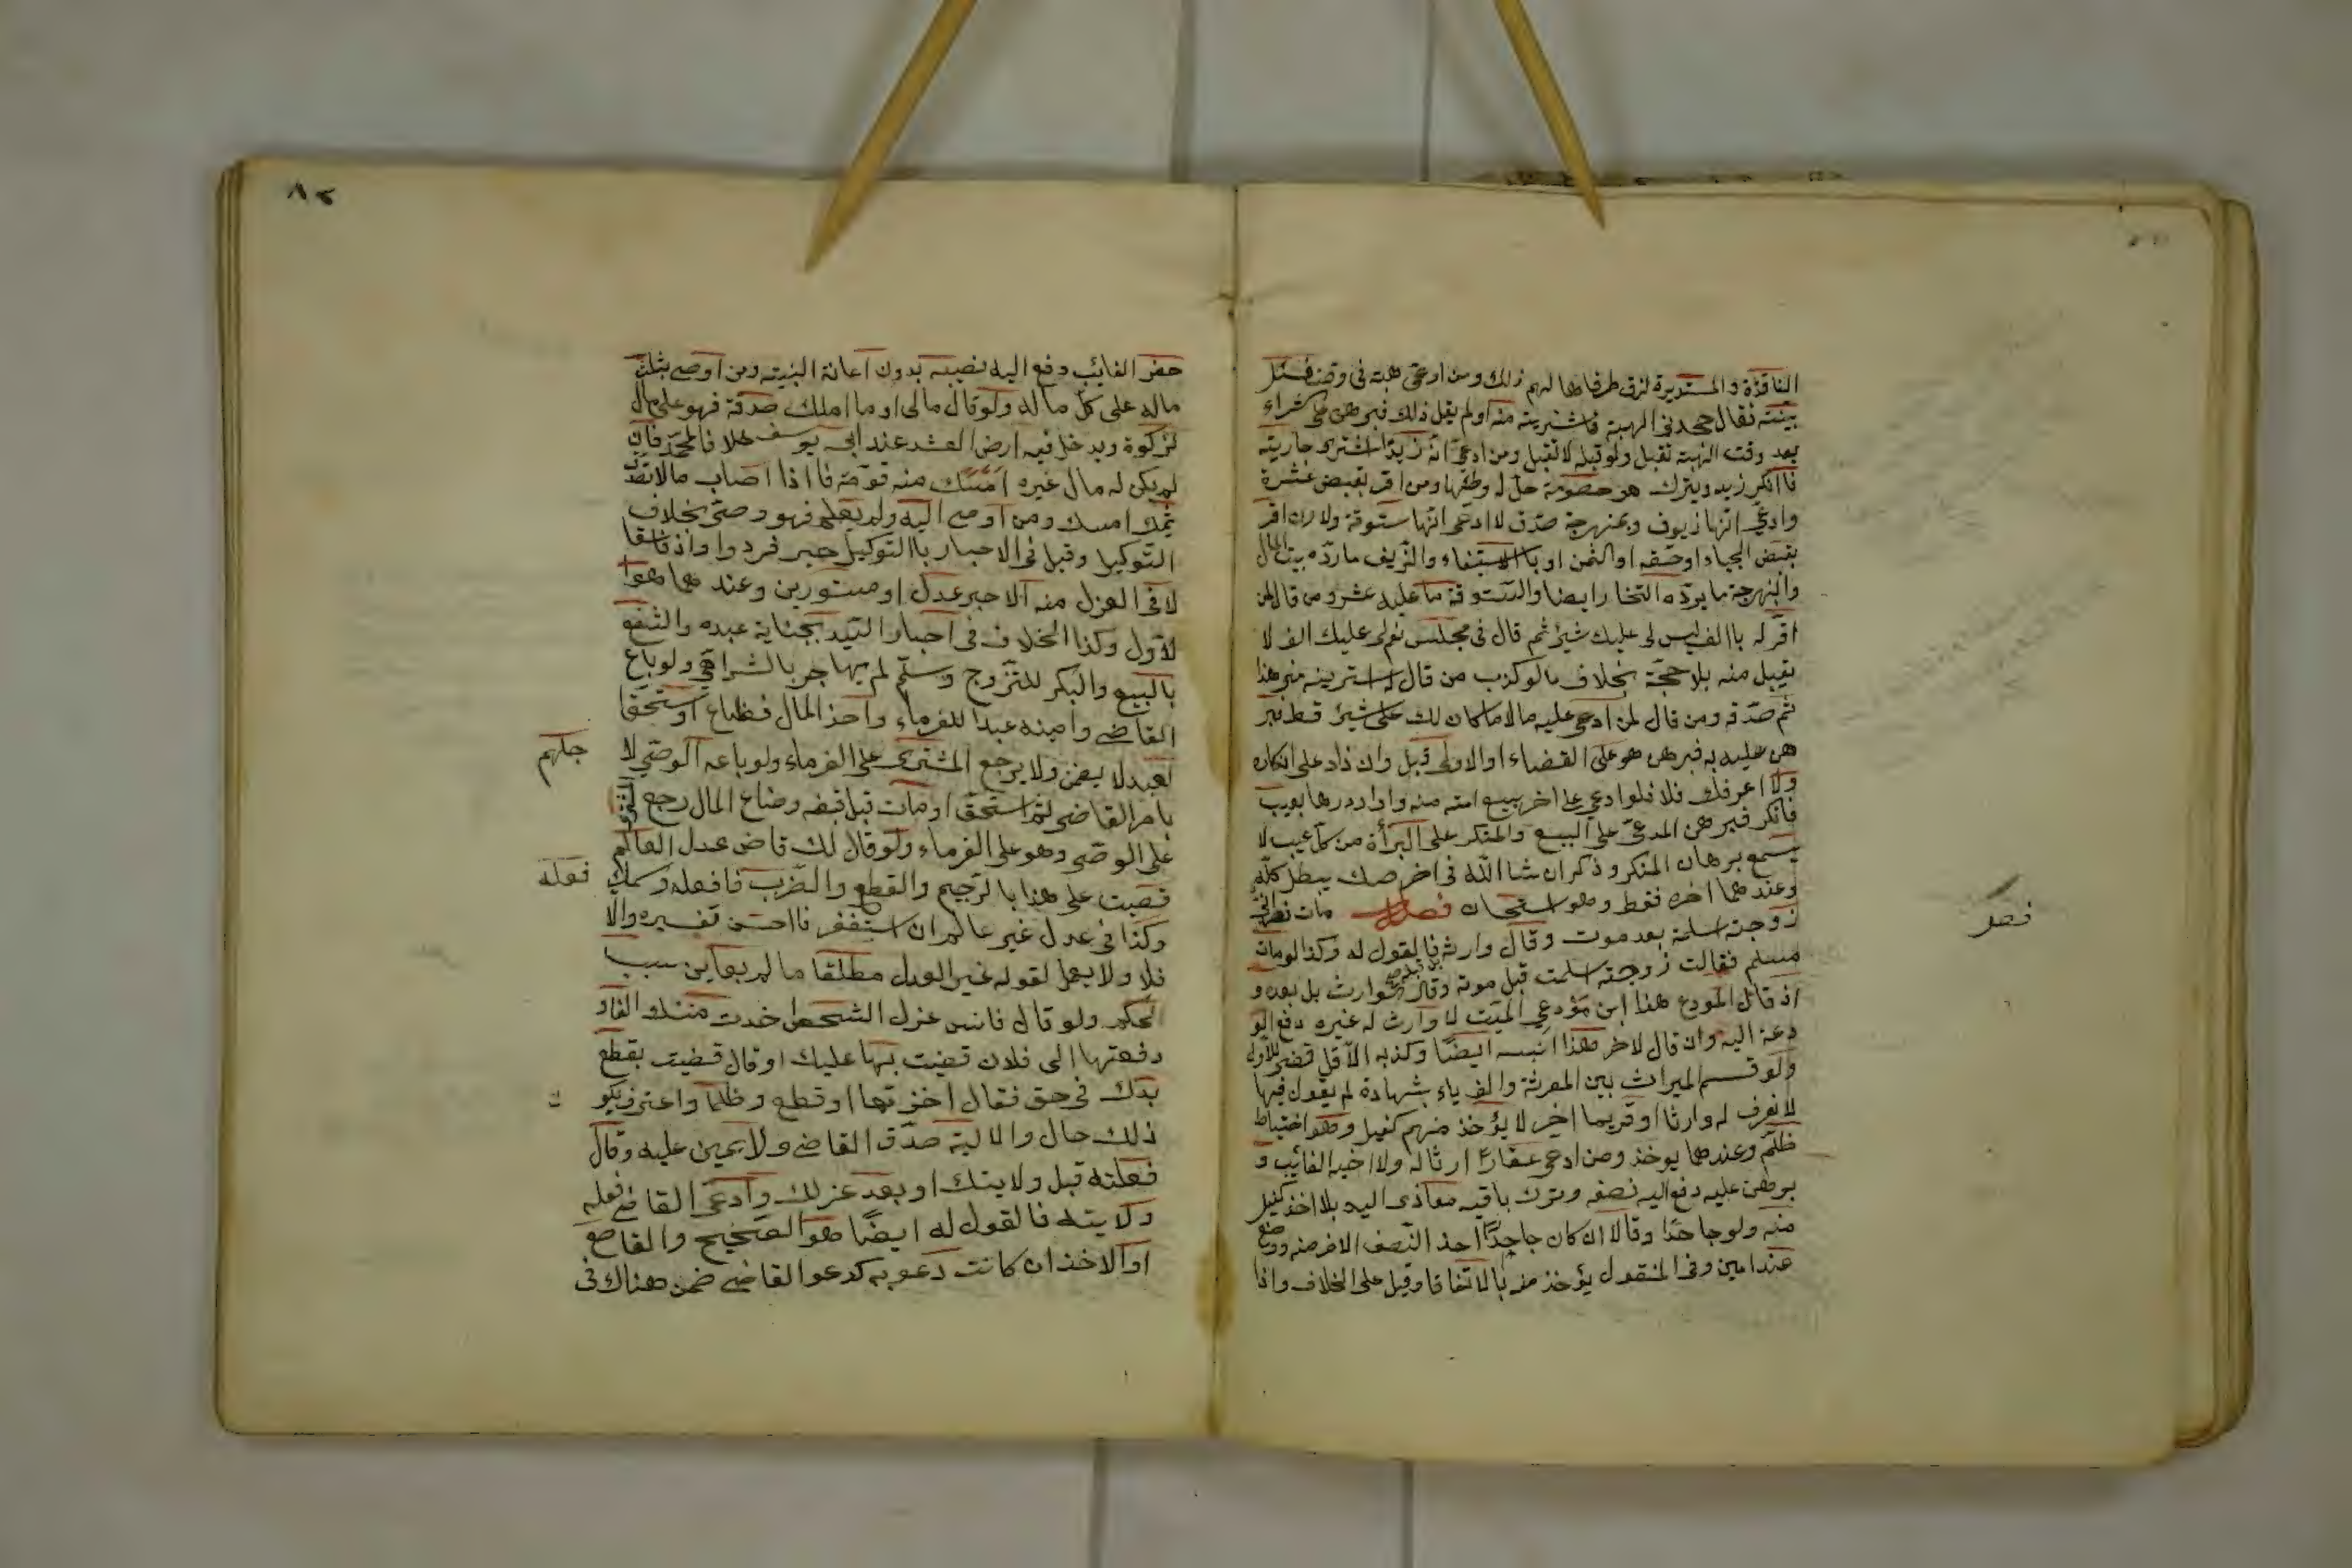 النافذة والمستديرة لزق طرفاها لهم ذلك ومن ادعى هبة في وقت فسئل
بينته فقال جحدني الهبة فاشتريته منه او لم يقل ذلك فبرهن على شراء
بعد وقت الهبة تقبل ولو قبله لا تقبل ومن ادعى ان زيدا اشترى جاريته
فاانكر زيد وترك هو خصومة حل له وطئها ومن اقر بقبض عشرة
وادعى انها زيوف وبنهرجة صدق لا ادعى انها ستوقة ولا ان اقر
بقبض الجياد او حقه او الثمن او باالاستيفاء والزيف ما رده بيت المال
والنهرجة ما يرده التجار ايضا والستوقة ما عليه غشه ومن قال لمن
اقر له باالف ليس لي عليك شيئ ثم قال في مجلس نعم لي عليك الف لا
يقبل منه بلا حجة بخلاف ما لو كذب من قال له اشتريته مني هذا
ثم صدقه ومن قال لمن ادعى عليه مالا ما كان لك على شيئ قط فبر
هن عليه به فبرهن هو على القضاء او الابراء قبل وان زاد على انكاره
ولا اعرفك فلا فلو ادعى على اخر بيع امته منه واراد ردها بعيب
فانكر فبرهن المدعي على البيع والمنكر على البرأة من كل عيب لا
يسمع برهان المنكر وذكر ان شا الله في اخر صك يبطل كله
وعندهما اخره فقط وهو استحسان فصل مات نصراني
زوجته اسلمت بعد موت وقال وارثه فالقول له وكذا لو مات
مسلم فقالت زوجته اسلمت قبل موته وقال الوارث بل بعده و
اذ قال المودع هذا ابن مؤدعي الميت لا وارث له غيره دفع الو
دعة اليه وان قال لاخر هذا ابنه ايضا وكذبه الاول قضى للاول
ولو قسم الميراث بين الغرماء بشهادة لم يقول فيها
لا نعرف له وارثا او غريما اخر لا يؤخذ منهم كفيل وهو احتياط
ظلم وعندهما يوخذ ومن ادعى عقارا ارثا له ولا اخيه الغائب و
برهن عليه دفع اليه نصفه وترك باقيه مع ذى اليد بلا اخذ كفيل
منه ولو جاحدا وقالا ان كان جاحدا اخذ النصف الاخر منه ووضع
عند امين وفي المنقول يؤخذ منه باالاتفاقا وقيل على الخلاف واذا
فصل
٨٢
حضر الغائب دفع اليه نصيبه بدون اعانة البينة ومن اوصى بثلث
ماله على كل ماله ولو قال مالى او ما املك صدقة فهو على مال
لزكوة ويدخل فيه ارض العشر عند ابى يوسف خلافا لمحمد فان
لم يكن له مال غيره امسك منه قوته فااذا اصاب مالا تصدق
بمثل امسك ومن اوصى اليه ولم يعلم فهو وصى بخلاف
التوكيل وقبل في الاخبار باالتوكيل خبر فرد وا وان فاسقا
لا في العزل منه الا خبر عدل او مستورين وعندهما هو
لاول وكذا الخلاف في اخبار السيد بجناية عبده والشفيع
بالبيع والبكر للتزوج ومسلم لم يهاجر بالشرائع ولو باع
القاضى وامينه عبدا للغرماء واخذ المال فضاع او ستحق
لعبد لا يضمن ولا يرجع المشترى على الغرماء ولو باعه الوصى لا
بامر القاضى ثم استحق او مات قبل قبضه وضاع المال رجع المشتري
على الوصى وهو على الغرماء ولو قال لك قاض عدل العالم
قضيت على هذا بالرجم والقطع والضرب فافعله وسعك
وكذا في عدل غير عالم ان استفسر فااحسن تفسيره والا
فلا ولا يعمل لقوله غير العدل مطلقا ما لم يعاين سبب
لحكم ولو قال قاض عزل الشخص اخذت منك الفا و
دفعتها الى فلان قضيت بها عليك او قال قضيت بقطع
يدك في حق فقال اخذتها او قطع وظلما واعترف بكو
ذلك حال والالية صدق القاضى ولا يمين عليه وقال
فعلته قبل ولايتك او بعد عزلك وادعى القاضى فعله
ولايته فالقول له ايضا هو الصحيح والقاطع
اوالاخذ ان كانت دعويه كدعوا القاضى ضمن هناك في
جلهم
فعله
ن